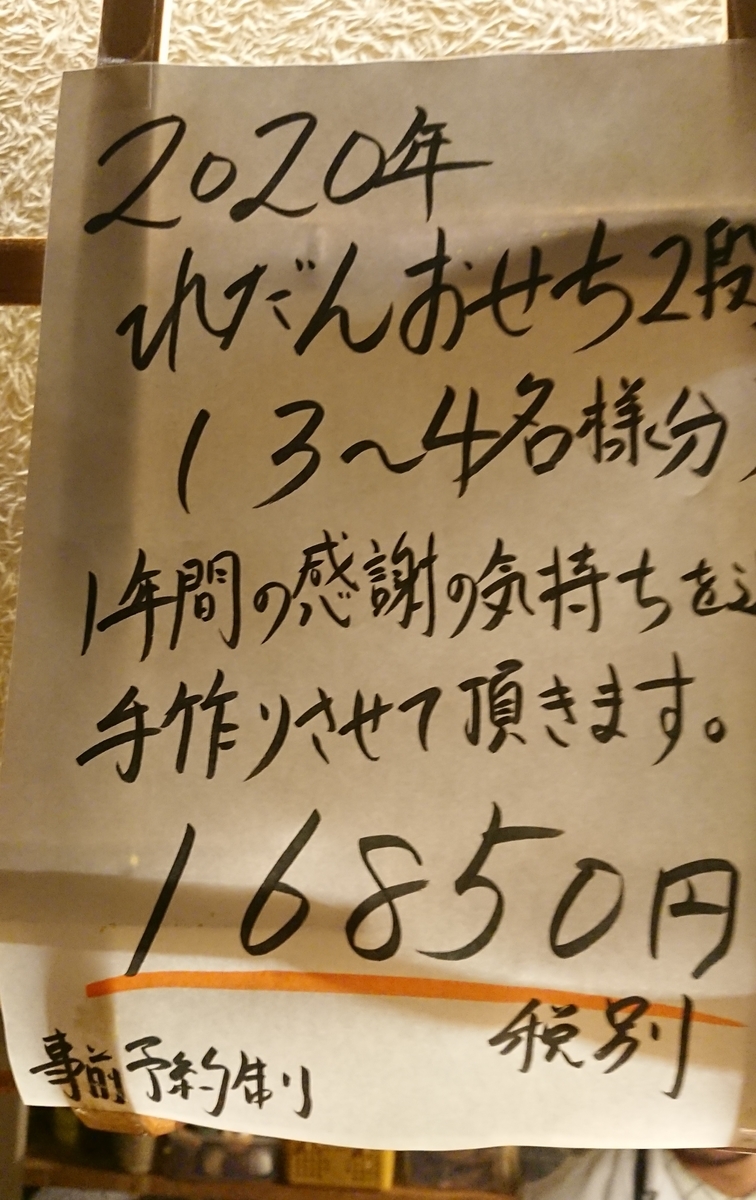 2020年
れだんおせち2段
(3〜4名様分)
1年間の感謝の気持ちを込
手作りさせて頂きます。
16850円
税別
事前予約制り